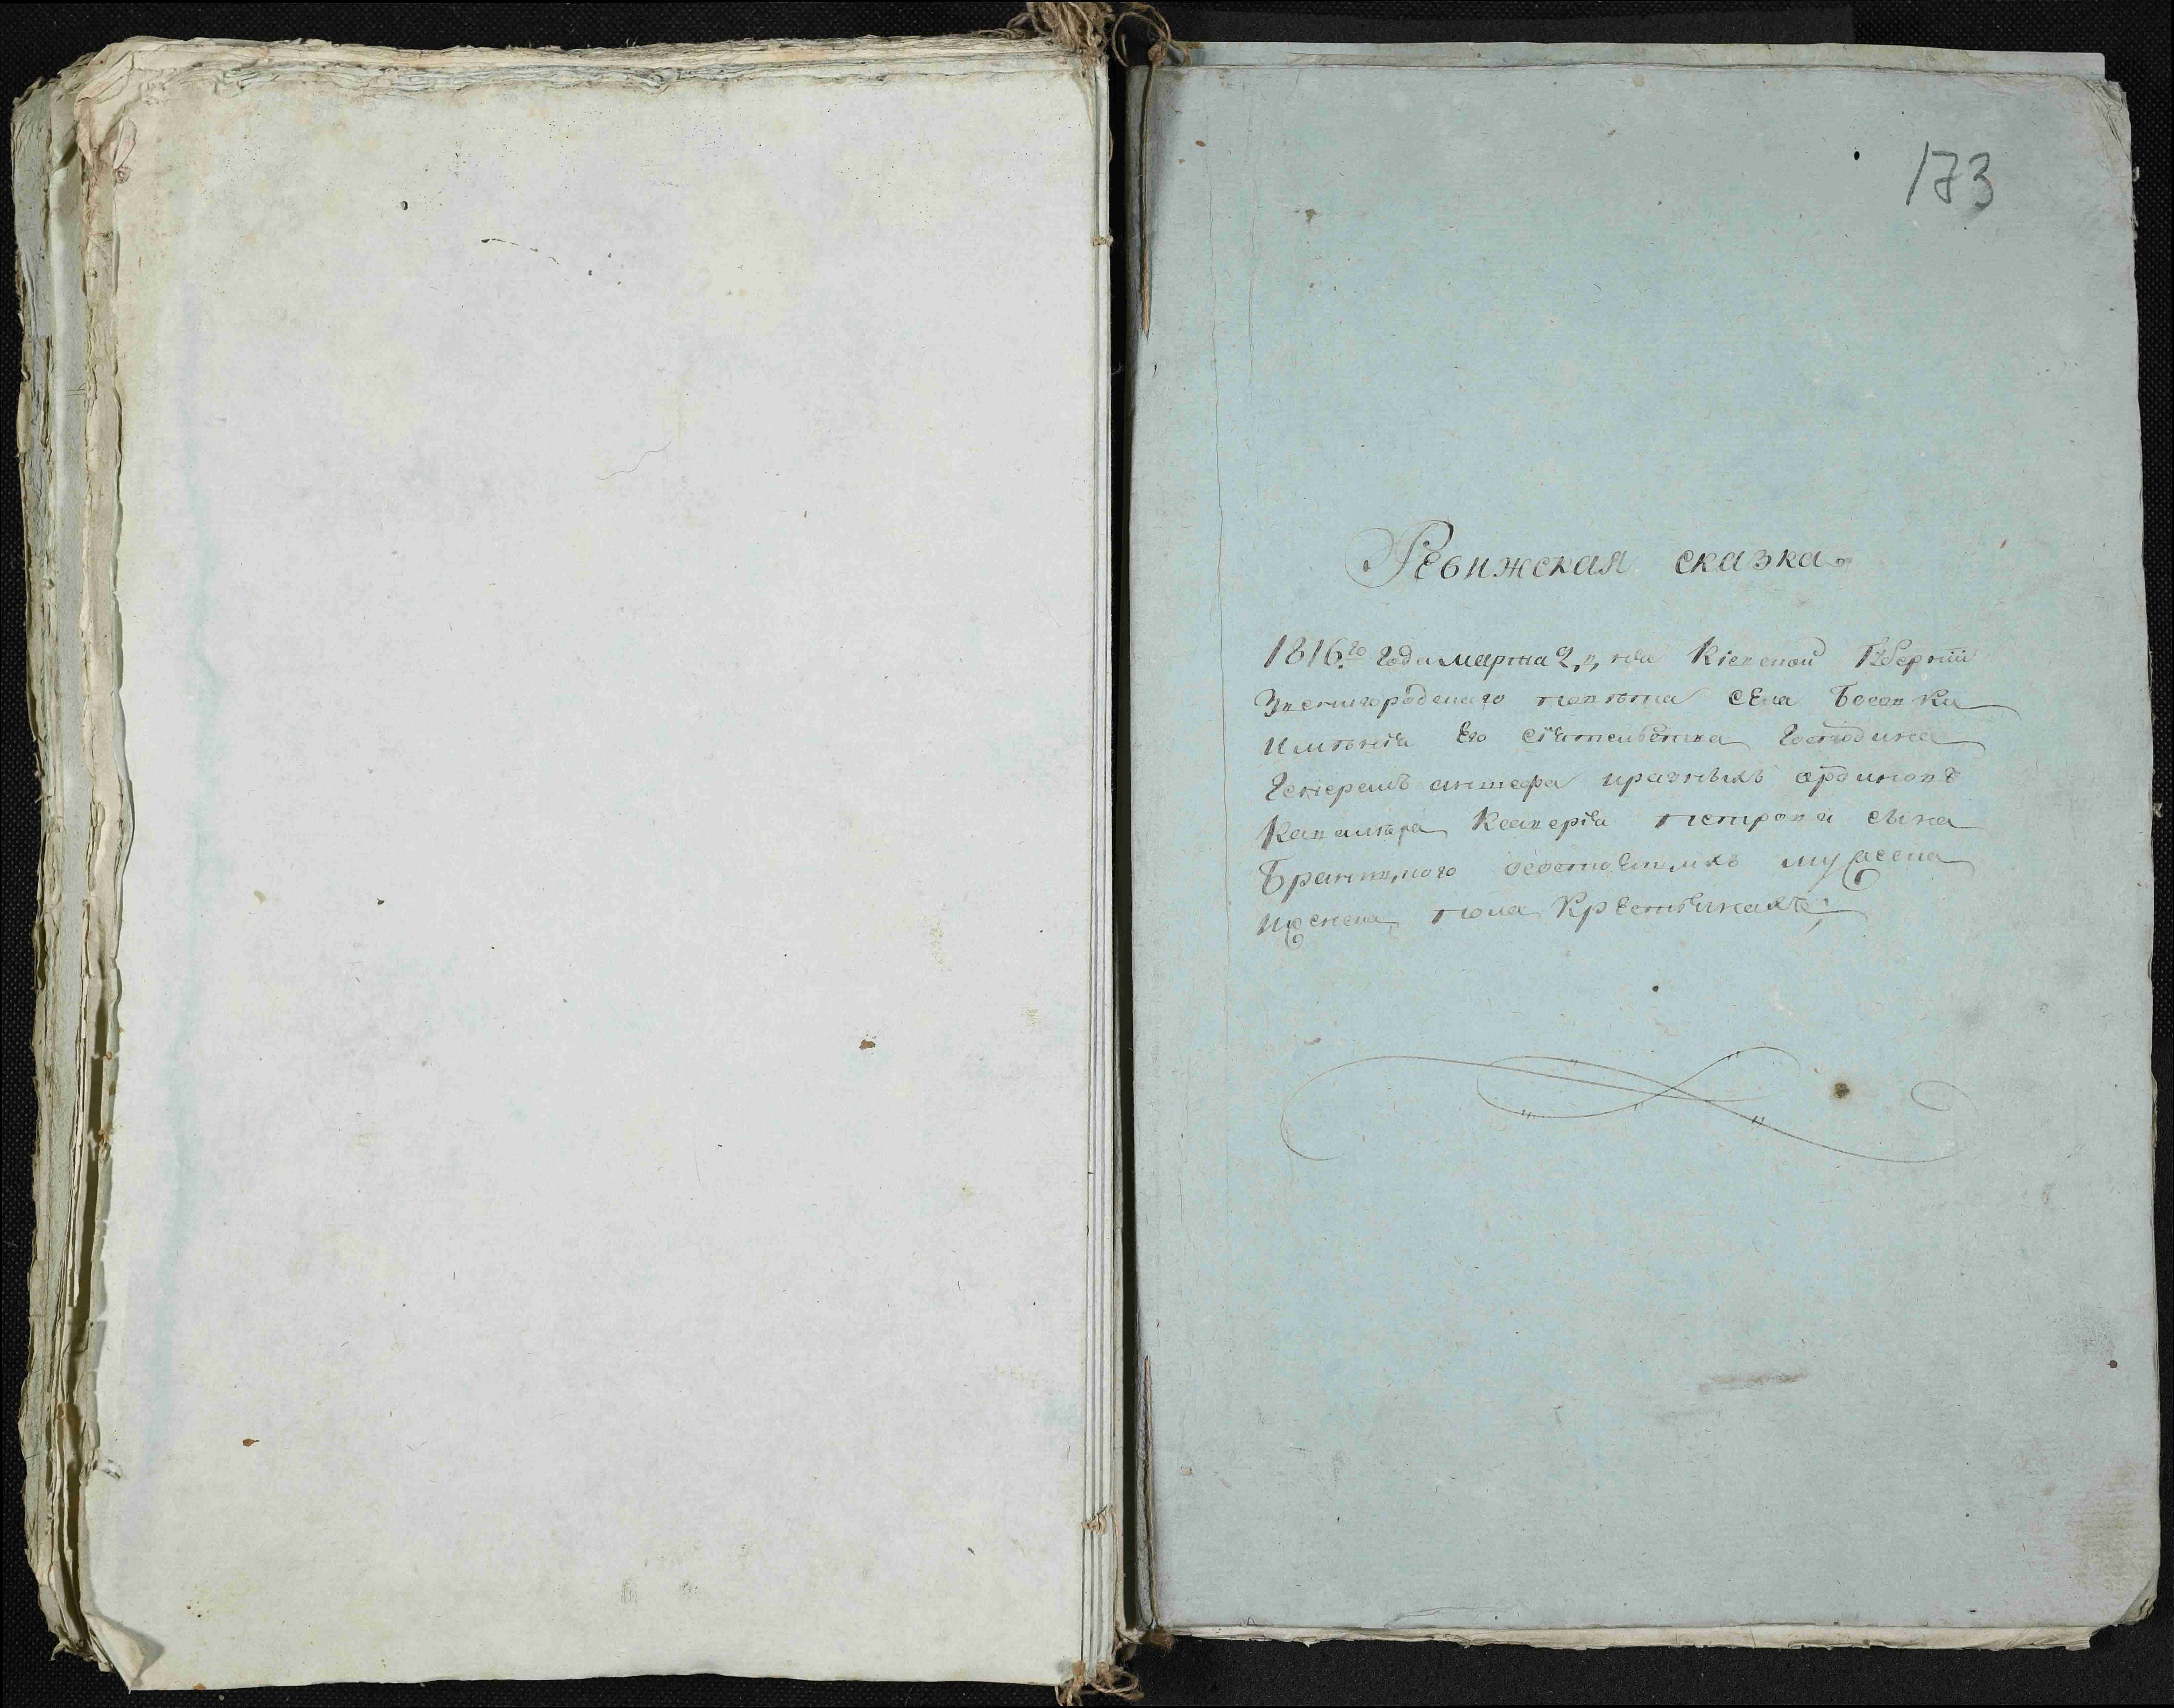 173
Ревижская сказка
1816.го года марта 2,,дня Кіевской Губерніи
Звенигородскаго повѣта села Босовки
имѣнія Его сіятельства Господина
Генералъ аншефа иразныхъ ординовъ
Кавалѣра Ксаверія петрова сына
Браницкого осостоящихъ мужеска
иженска пола крестьянахъ;